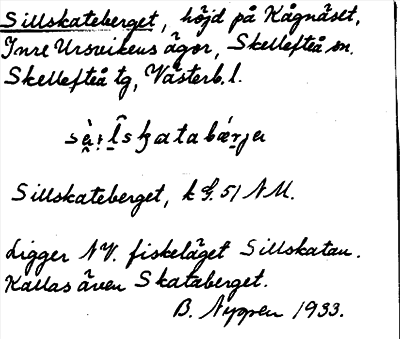 Sillskateberget, höjd på Kågnäset,
Inre Ursvikens ägor, Skellefteå sn.
Skellefteå tg, Västerb. l.
Sillskateberget, k 51 NM.
Ligger NV. fiskeläget Sillskatan.
Kallas även Skataberget.
B. Nyppen 1933.